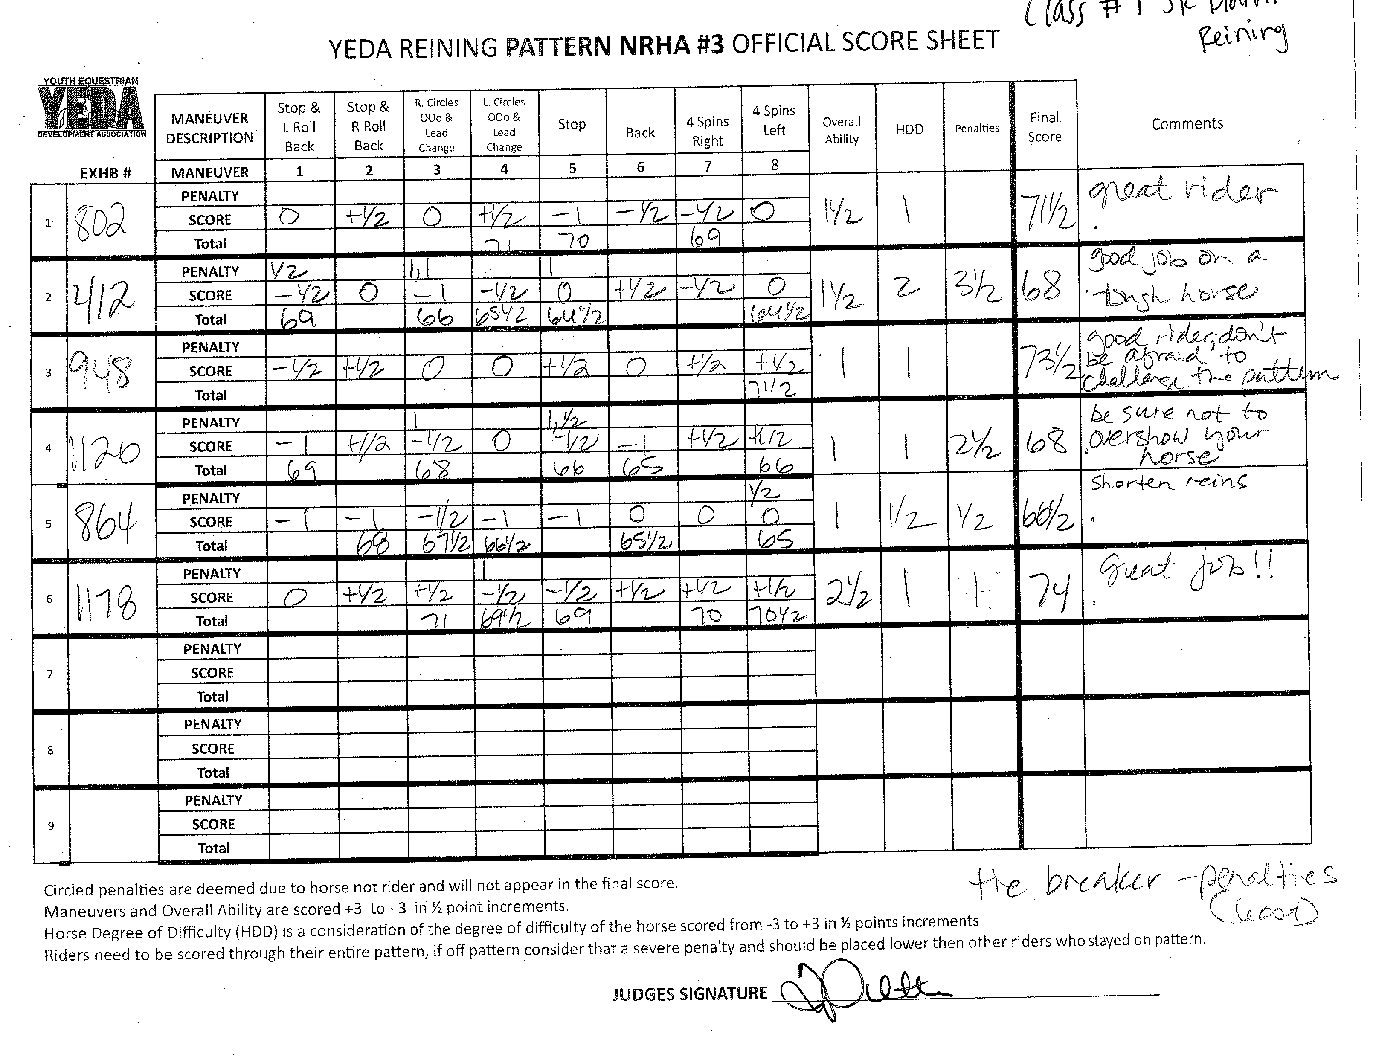 Class # 1 JR
Reining
YEDA REINING PATTERN NRHA #3 OFFICIAL SCORE SHEET
YOUTH EQUESTRIAN
YEDA
DEVELOPMENT ASSOCIATION
EXHB # MANEUVER DESCRIPTION Stop & L Roll Back Stop & R Roll Back R. Circles OOc & Lead Change L. Circles OCo & Lead Change Stop Back 4 Spins Right 4 Spins Left Overall Ability HDD Penalties Final Score Comments
MANEUVER 1 2 3 4 5 6 7 8
1 802 PENALTY
SCORE 0 +1/2 0 +1/2 -1 -1/2 -1/2 0 1 1/2 1 71 1/2 great rider
Total 71 70 69
2 412 PENALTY 1/2 1,1 1
SCORE -1/2 0 -1 -1/2 0 +1/2 -1/2 0 1 1/2 2 3 1/2 68 good job on a tough horse
Total 69 66 65 1/2 64 1/2 64 1/2
3 948 PENALTY
SCORE -1/2 +1/2 0 0 +1/2 0 +1/2 +1/2 1 1 73 1/2 good rider, don't be afraid to challenge the pattern
Total 71 1/2
4 1120 PENALTY 1 1, 1/2
SCORE -1 +1/2 -1/2 0 -1/2 -1 +1/2 +1/2 1 1 2 1/2 68 be sure not to overshow your horse
Total 69 68 66 65 66
5 864 PENALTY 1/2
SCORE -1 -1 -1/2 -1 -1 0 0 0 1 1/2 1/2 66 1/2 Shorten reins
Total 68 67 1/2 66 1/2 65 1/2 65
6 1178 PENALTY 1
SCORE 0 +1/2 +1/2 -1/2 -1/2 +1/2 +1/2 +1/2 2 1/2 1 1 74 Great job!!
Total 71 69 1/2 69 70 70 1/2
7 PENALTY
SCORE
Total
8 PENALTY
SCORE
Total
9 PENALTY
SCORE
Total
tie breaker - penalties
(least)
Circled penalties are deemed due to horse not rider and will not appear in the final score.
Maneuvers and Overall Ability are scored +3 to -3 in ½ point increments.
Horse Degree of Difficulty (HDD) is a consideration of the degree of difficulty of the horse scored from -3 to +3 in ½ points increments
Riders need to be scored through their entire pattern, if off pattern consider that a severe penalty and should be placed lower then other riders who stayed on pattern.
JUDGES SIGNATURE